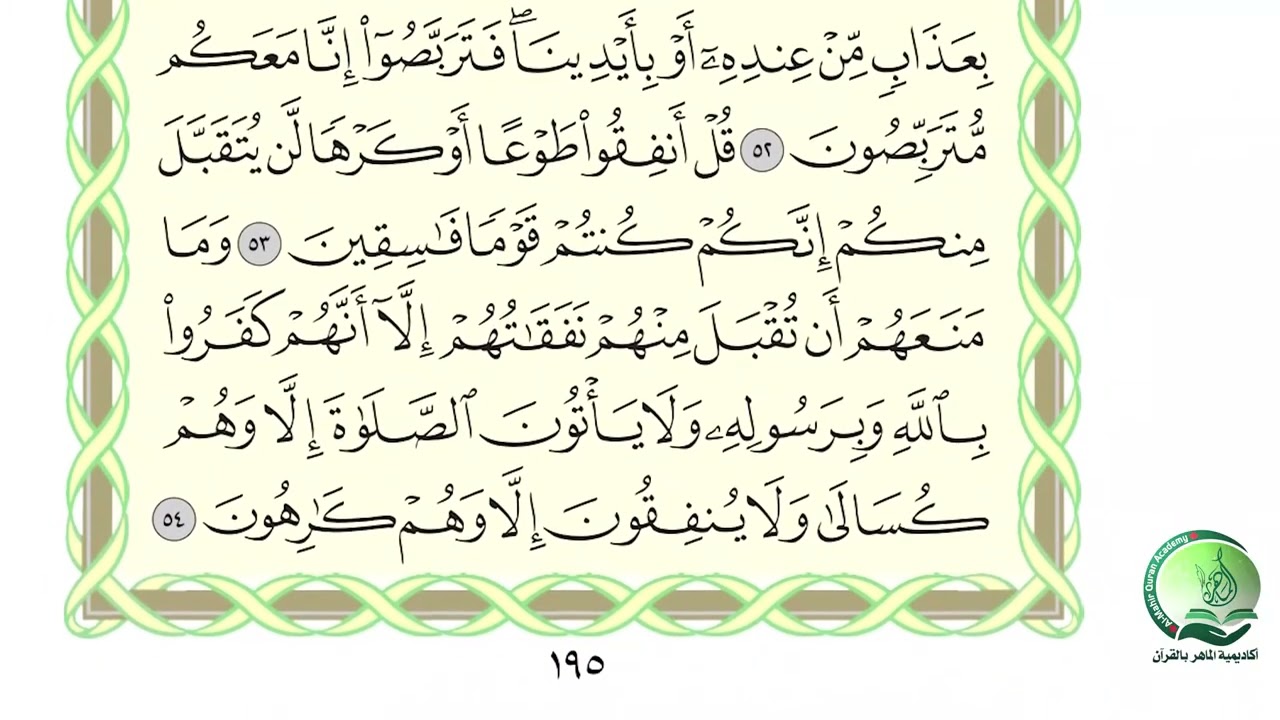 بِعَذَابٖ مِّنۡ عِندِهِۦٓ أَوۡ بِأَيۡدِينَاۖ فَتَرَبَّصُوٓاْ إِنَّا مَعَكُم
مُّتَرَبِّصُونَ ٥٢ قُلۡ أَنفِقُواْ طَوۡعًا أَوۡ كَرۡهٗا لَّن يُتَقَبَّلَ
مِنكُمۡ إِنَّكُمۡ كُنتُمۡ قَوۡمٗا فَٰسِقِينَ ٥٣ وَمَا
مَنَعَهُمۡ أَن تُقۡبَلَ مِنۡهُمۡ نَفَقَٰتُهُمۡ إِلَّآ أَنَّهُمۡ كَفَرُواْ
بِٱللَّهِ وَبِرَسُولِهِۦ وَلَا يَأۡتُونَ ٱلصَّلَوٰةَ إِلَّا وَهُمۡ
كُسَالَىٰ وَلَا يُنفِقُونَ إِلَّا وَهُمۡ كَٰرِهُونَ ٥٤
١٩٥
Al-Mahir Quran Academy
أكاديمية الماهر بالقرآن